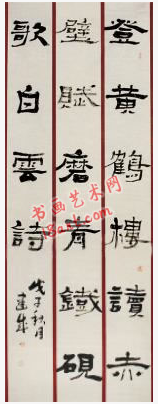 登黄鶴樓讀赤
壁賦磨青鐵硯
歌白雲詩
戊子秋月
建成
书画艺术网